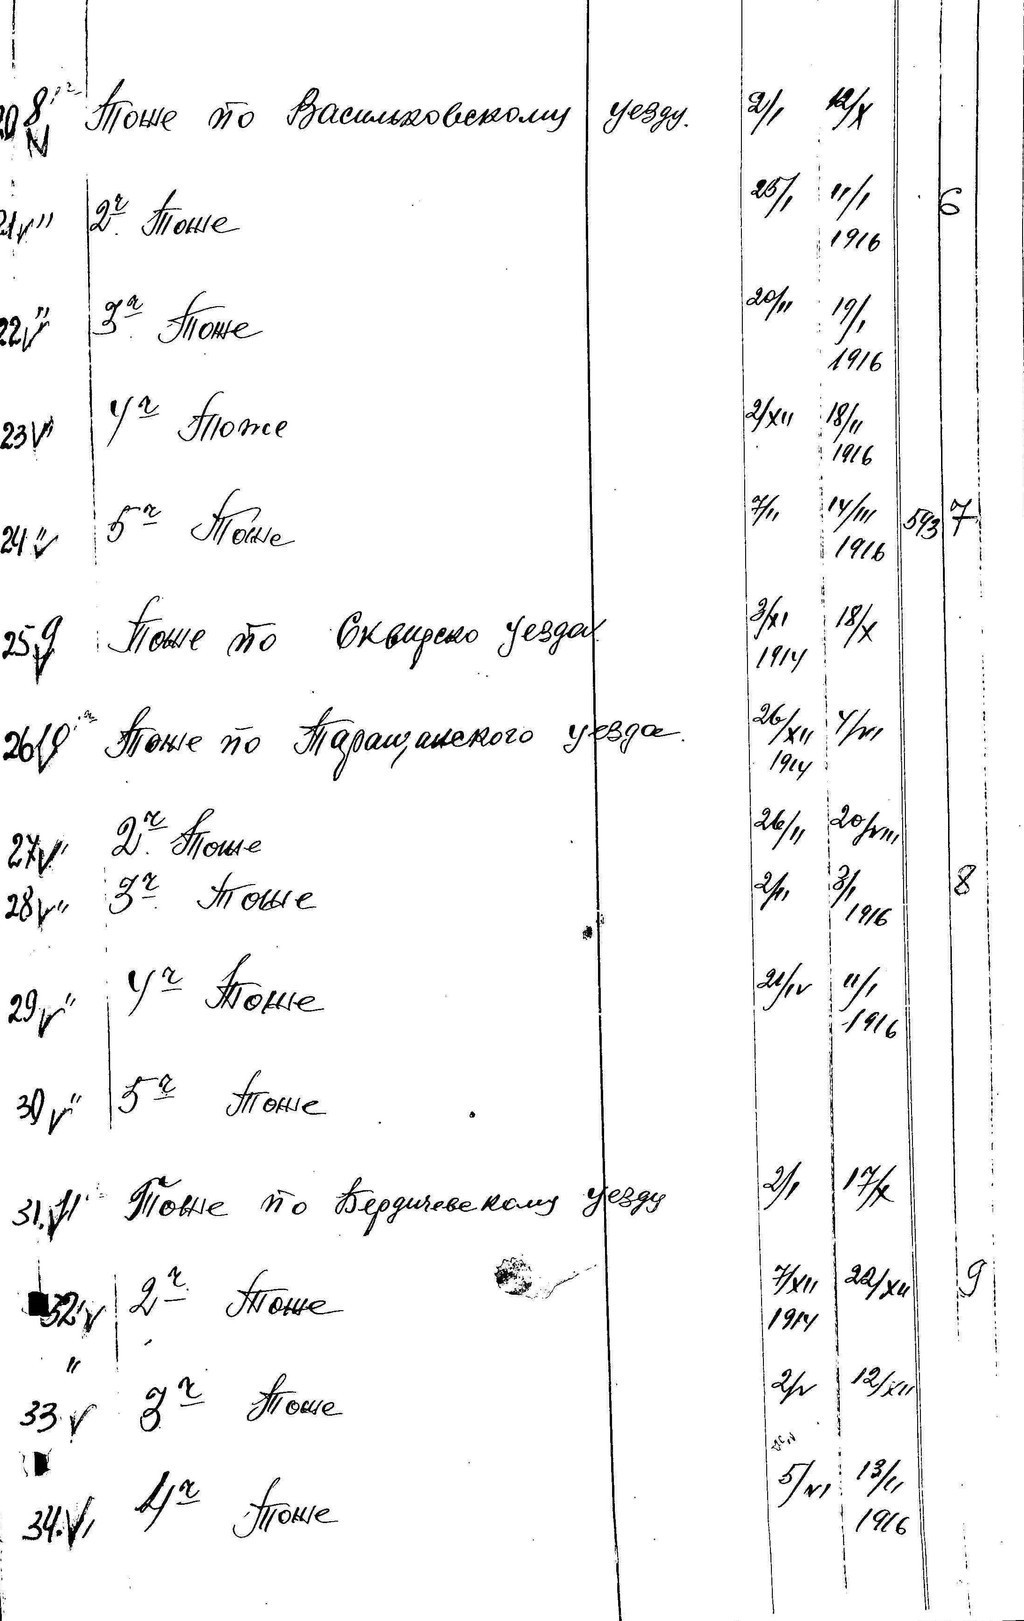 20 8 Тоже по Васильковскому уезду. 2/I 12/X
21 " 2ч. Тоже 25/I 11/I 6
1916
22 " 3ч. Тоже 20/II 19/I
1916
23 " 4ч Тоже 2/XII 18/II
1916
24 " 5ч Тоже 7/II 14/III 593 7
1916
25 9 Тоже по Сквирско уезда. 3/XI 18/X
1914
26 10 Тоже по Таращанского уезда. 26/XII
1914
27 " 2ч. Тоже 26/II 20/VIII
28 " 3ч. Тоже 2/II 3/I 8
1916
29 " 4ч Тоже 21/IV 11/I
1916
30 " 5ч Тоже
31. 11 Тоже по Бердичевскому уезду 2/I 17/X
32. 2ч Тоже 7/XII 22/XII 9
1914
"
33. 3ч Тоже 2/V 12/XII
34. 4ч Тоже 13/II
1916